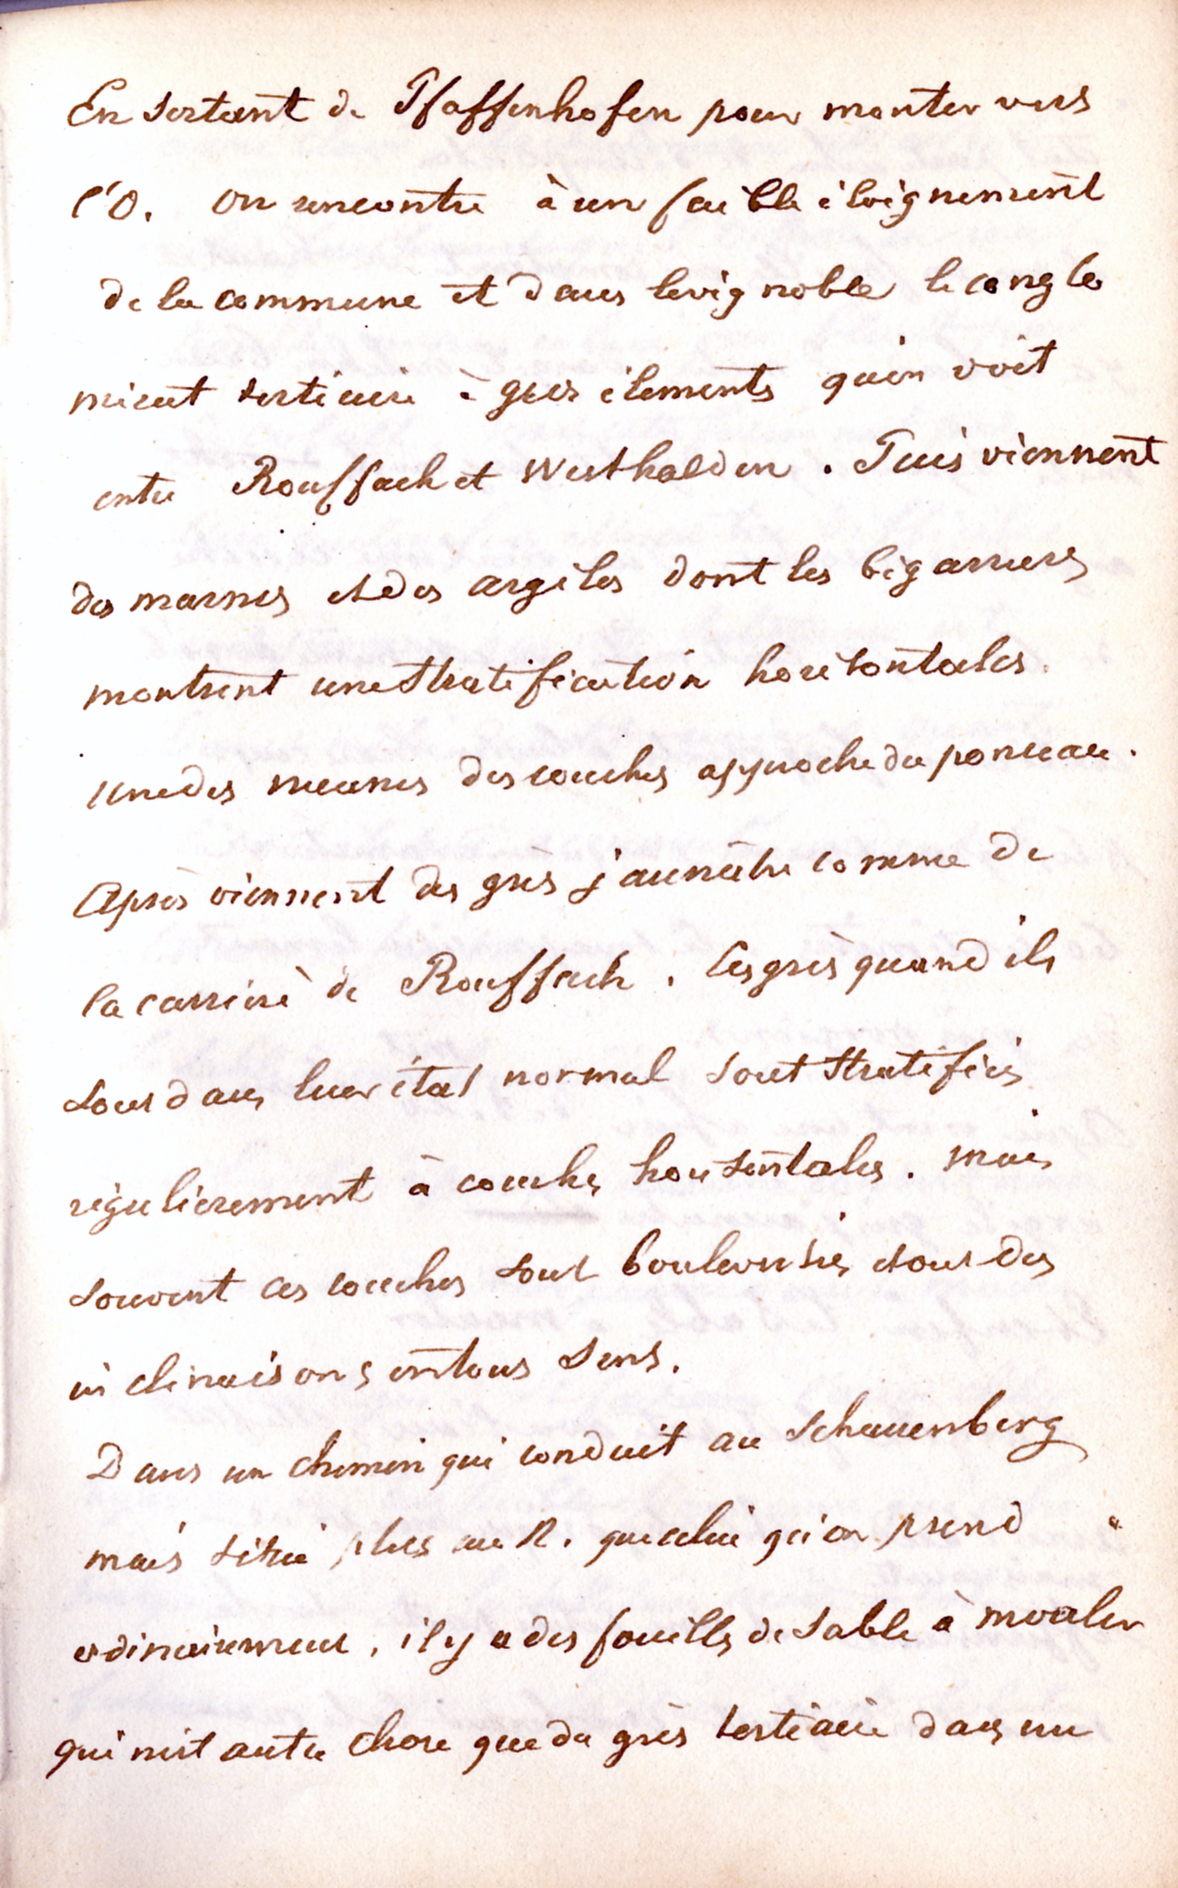 En sortant de Pfaffenhofen pour monter vers
l'O. on rencontre à un faible éloignement
de la commune et dans le vignoble le conglo
mérat tertiaire à gros éléments qu'on voit
entre Rouffach et Westhalden. Puis viennent
des marnes et des argiles dont les bigarrures
montrent une stratification horizontales.
une des nuances des couches approche du ponceau.
Après viennent des grès jaunâtre comme de
la carrière de Rouffach. Les grès quand ils
sous dans leur état normal sont stratifiés
régulièrement à couches horisontales. Mais
souvent ces couches sont bouleversées et ont des
inclinaisons en tous sens.
Dans un chemin qui conduit au Schauenberg
mais situé plus au N. que celui qu'on prend
ordinairement, il y a des fouilles de sable à mouler
qui n'est autre chose que du grès tertiaire dans un